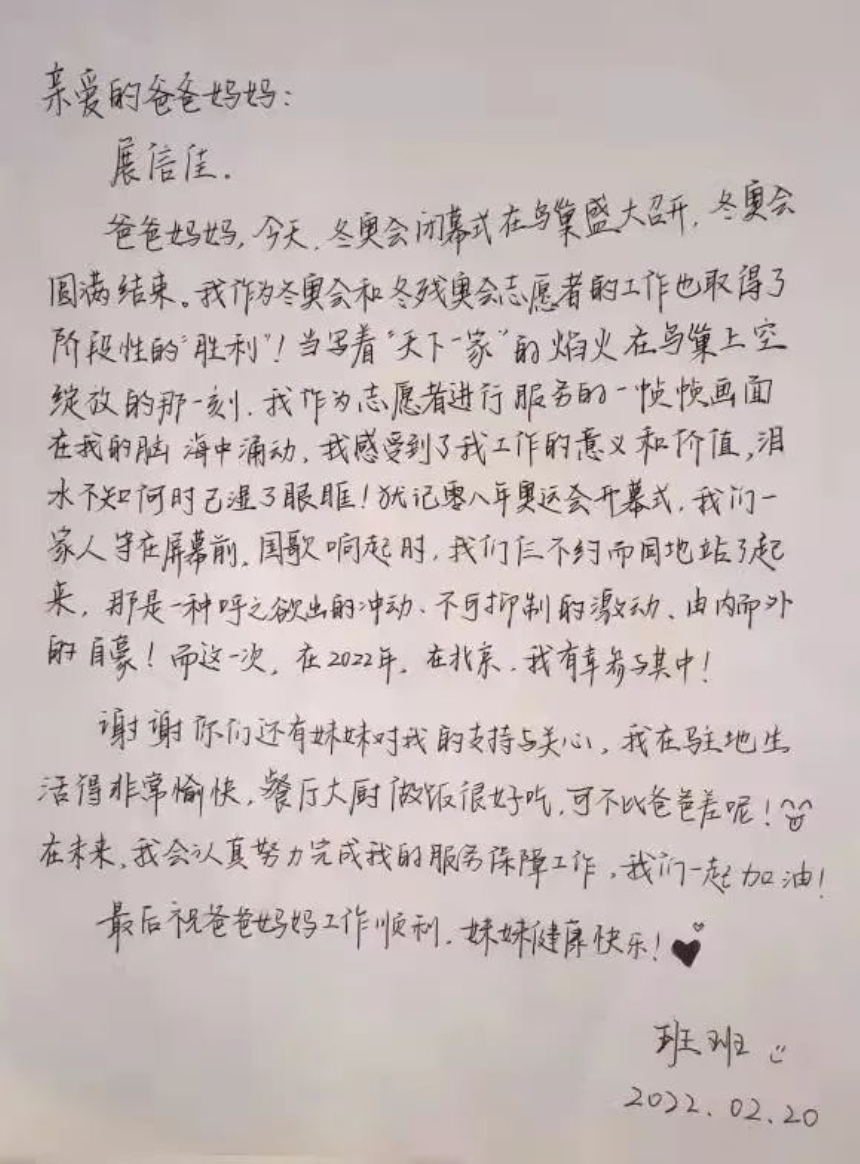 亲爱的爸爸妈妈：
展信佳.
爸爸妈妈,今天,冬奥会闭幕式在鸟巢盛大召开,冬奥会
圆满结束。我作为冬奥会和冬残奥会志愿者的工作也取得了
阶段性的“胜利”！当写着“天下一家”的焰火在鸟巢上空
绽放的那一刻,我作为志愿者进行服务的一帧帧画面
在我的脑海中涌动,我感受到了我工作的意义和价值,泪
水不知何时已湿了眼眶！犹记零八年奥运会开幕式,我们一
家人守在屏幕前,国歌响起时,我们仨不约而同地站了起
来,那是一种呼之欲出的冲动、不可抑制的激动、由内而外
的自豪！而这一次,在2022年,在北京,我有幸参与其中！
谢谢你们还有妹妹对我的支持与关心,我在驻地生
活得非常愉快,餐厅大厨做饭很好吃,可不比爸爸差呢！
在未来,我会认真努力完成我的服务保障工作,我们一起加油！
最后祝爸爸妈妈工作顺利,妹妹健康快乐！
班班
2022.02.20